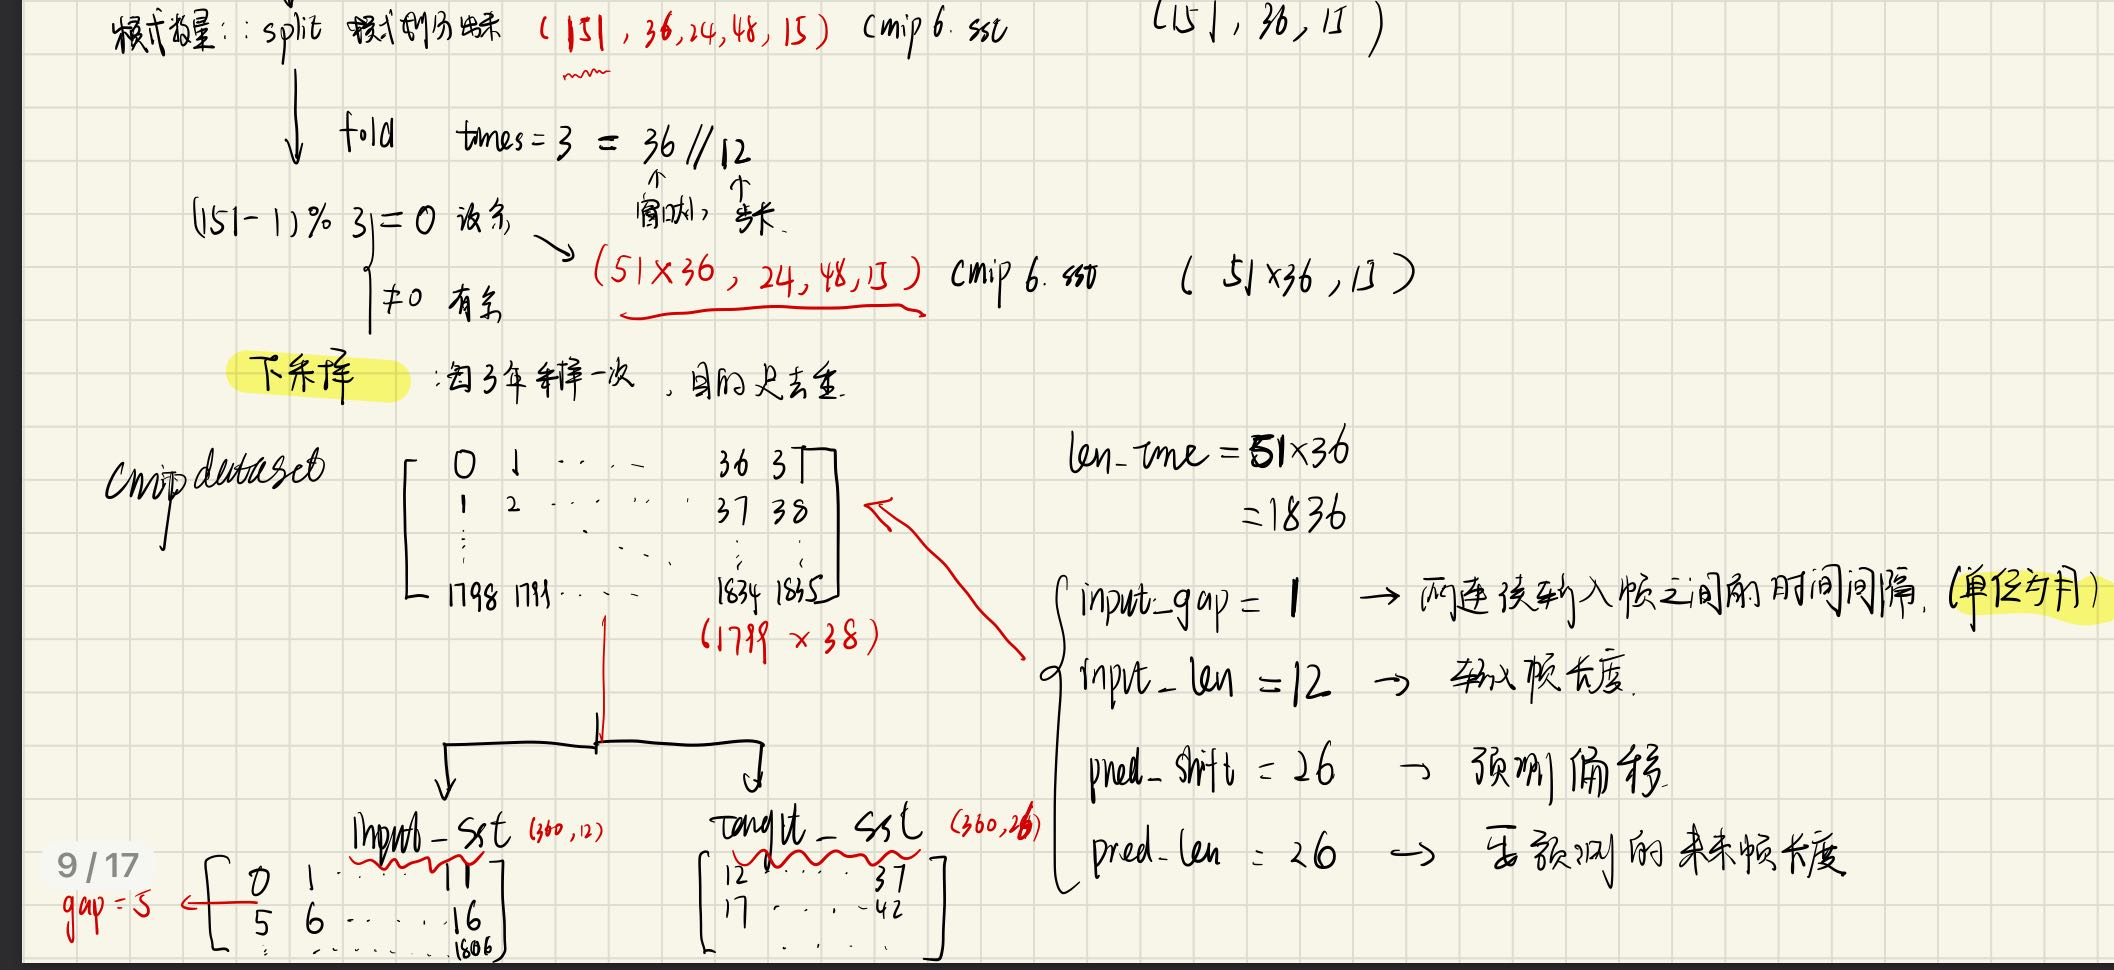 模式数量:: split 模式划分出来 (151, 36,24,48, 15) cmip6. sst (151, 36, 15)
fold times = 3 = 36 // 12
↑ ↑
窗口大小 步长.
(151-1)% 3 = 0 没余
≠0 有余
(51×36, 24,48,15) cmip6. sst (51×36, 15)
下采样 : 每3年采样一次, 目的是去重.
cmip dataset
0 1 ····· 36 37
1 2 ······ 37 38
1798 1799 ····· 1834 1835
(1799 × 38)
len_time = 51×36
=1836
input_gap = 1 → 两连续输入帧之间的时间间隔. (单位为月)
input_len = 12 → 输入帧长度.
pred_shift = 26 → 预测偏移.
pred_len = 26 → 要预测的未来帧长度
input_sst (360,12) target_sst (360,26)
9 / 17
gap = 5
0 1 ···· 11
5 6 ···· 16
1806
12 ···· 37
17 ···· 42